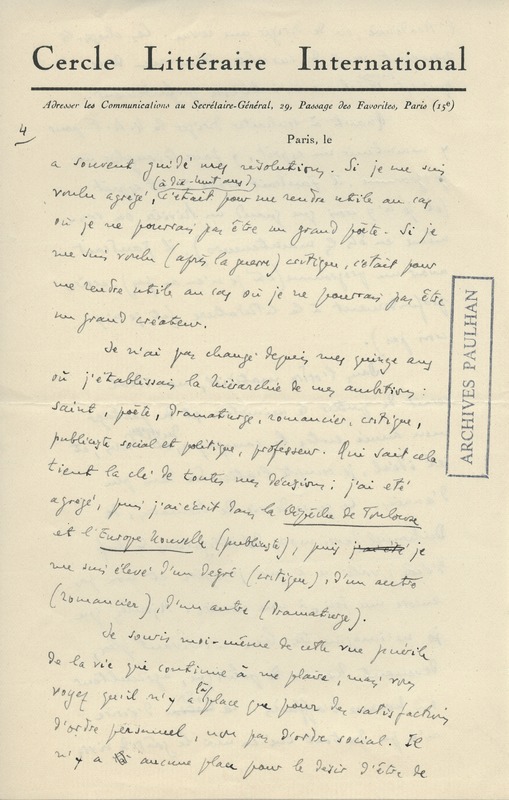 Cercle Littéraire International
Adresser les Communications au Secrétaire-Général, 29, Passage des Favorites, Paris (15e)
4
Paris, le
a souvent guidé mes résolutions. Si je me suis
(à dix-huit ans)
voulu agrégé, c'était pour me rendre utile au cas
où je ne pourrais pas être un grand poète. Si je
me suis voulu (après la guerre) critique, c'était pour
me rendre utile au cas où je ne pourrais pas être
un grand créateur.
Je n'ai pas changé depuis mes quinze ans
où j'établissais la hiérarchie de mes ambitions :
saint, poète, dramaturge, romancier, critique,
publiciste social et politique, professeur. Qui sait cela
tient la clé de toutes mes décisions ; j'ai été
agrégé, puis j'ai écrit dans la Dépêche de Toulouse
et l'Europe Nouvelle (publiciste), puis j'ai été je
me suis élevé d'un degré (critique), d'un autre
(romancier), d'un autre (dramaturge).
Je souris moi-même de cette vue puérile
de la vie qui continue à me plaire, mais vous
voyez qu'il n'y a là place que pour des satisfactions
d'ordre personnel, non pas d'ordre social. Il
n'y a aucune place pour le désir d'être de
ARCHIVES PAULHAN